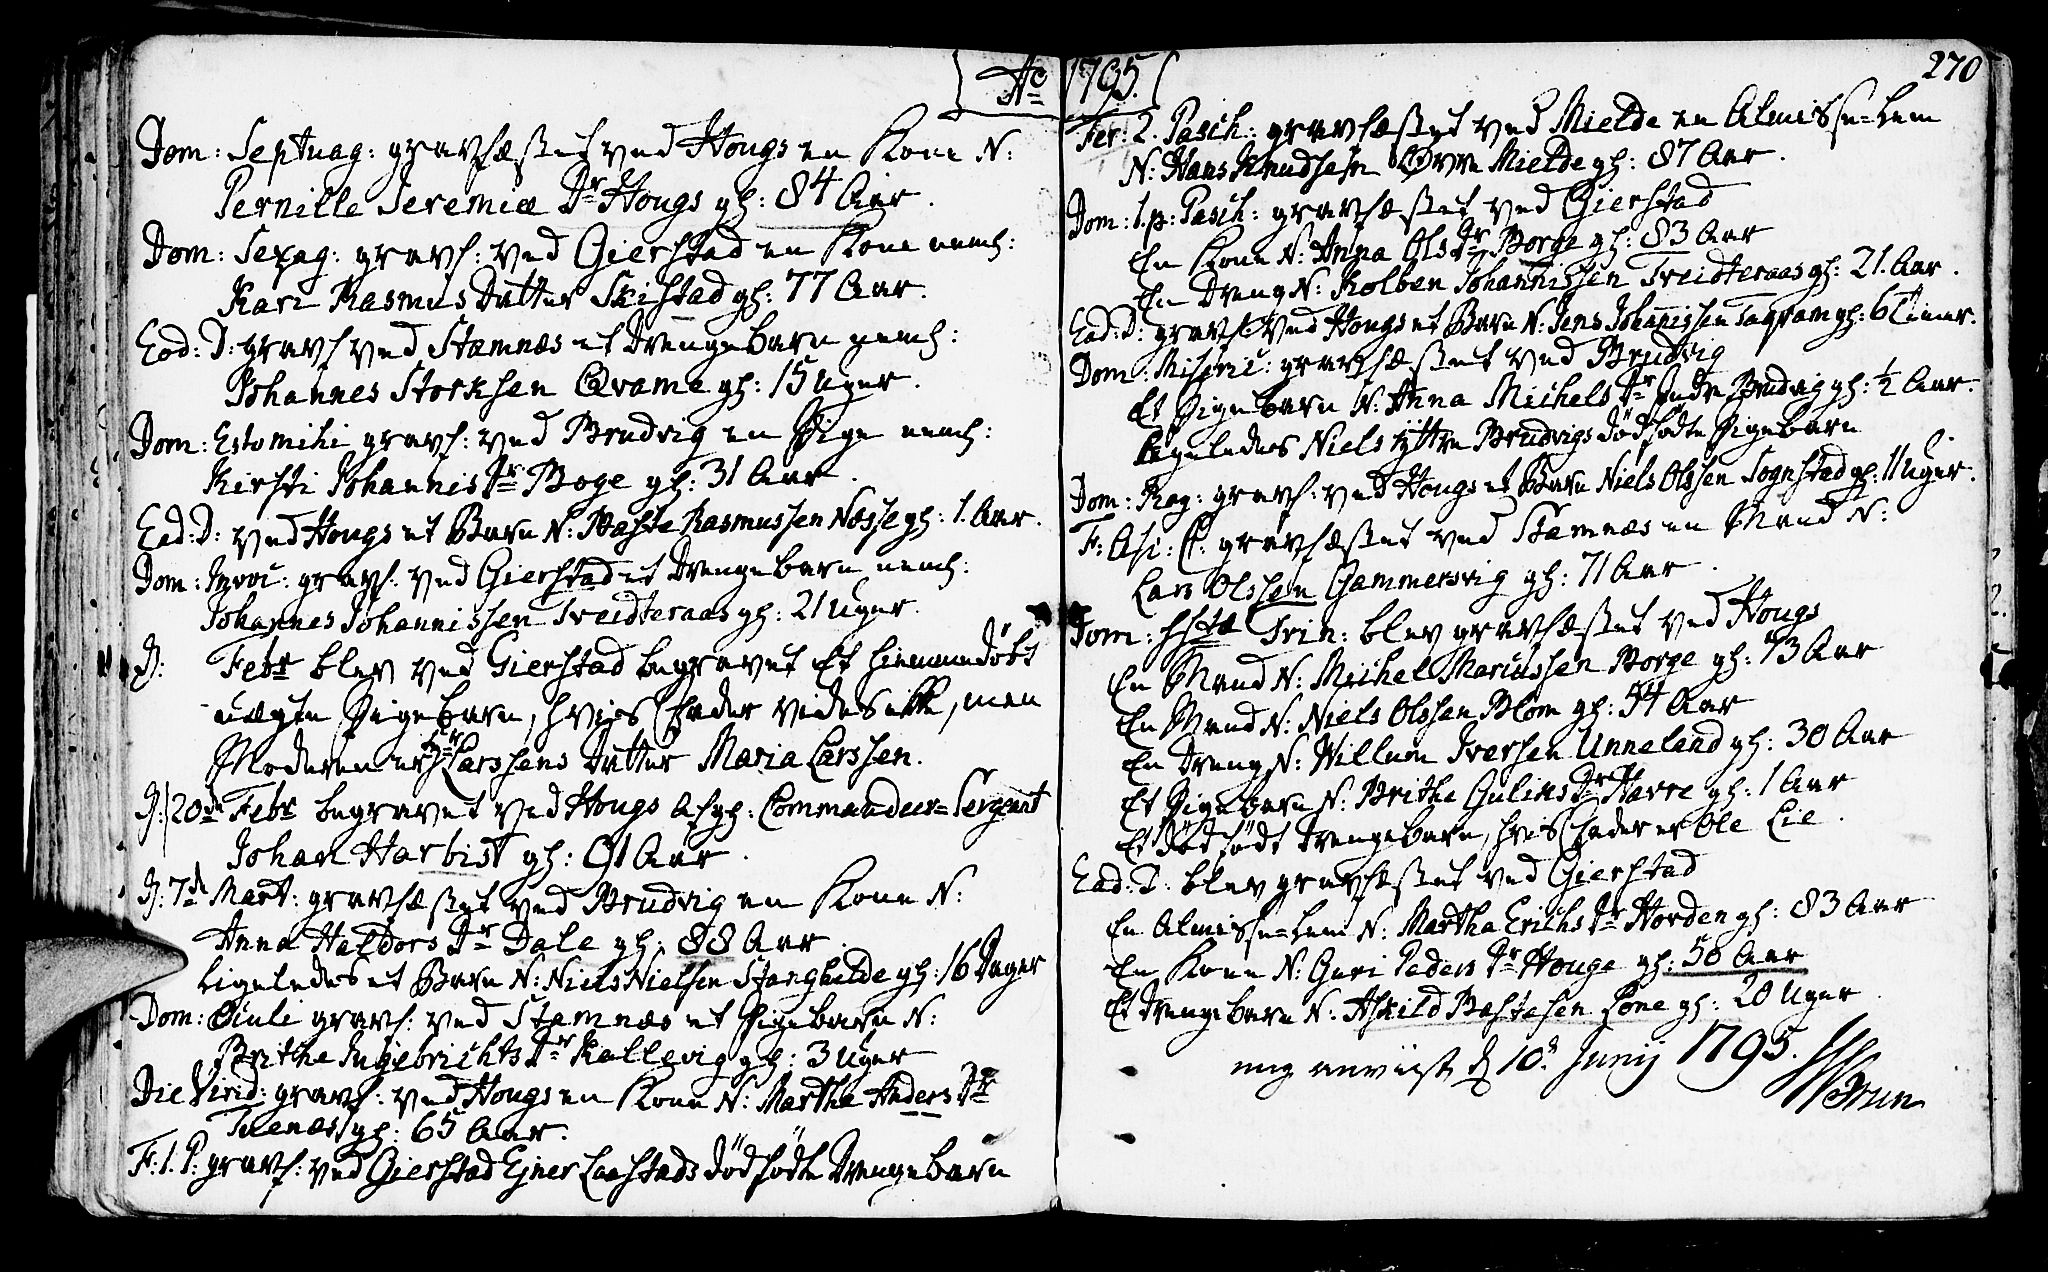 Ao 1795.
270
Dom: Septuag: gravfæstet ved Hougs en Kone N:
Pernille Jeremiæ Dr Hougs gl: 84 Aar.
Dom: Sexag: gravf: ved Gierstad en Kone neml:
Kari Rasmus Datter Skistad gl: 77 Aar.
Eod: D: gravf ved Stamnæs et Drengebarn neml:
Johannes Storksen Qvame gl: 15 Uger.
Dom: Estomihi gravf: ved Brudvig en Pige neml:
Kirsti Johannis Dr Boge gl: 31 Aar.
Ead: D: ved Hougs et Barn N: Baste Rasmussen Nesse gl: 1. Aar.
Dom: Invoc: gravf: ved Gierstad et Drengebarn neml:
Johannes Johannissen Tveidteraas gl: 21 Uger.
D: Febr blev ved Gierstad begravet Et hiemmedøbt
uægte Pigebarn, hvis Fader vides ikke, men
Moderen er Hr Larssens Datter Maria Larssen.
D: 20de Febr begravet ved Hougs Afg: Commandeur-Sergent
Johan Harbist gl: 91 Aar.
D: 7de Mart: gravfæstet ved Brudvig en Kone N:
Anna Haldors Dr Dale gl: 88 Aar.
Ligeledes et Barn N: Niels Nielsen Stanghelde gl: 16 Dager
Dom: Oculi gravf: ved Stamnæs et Pigebarn N:
Brithe Ingebrichts Dr Kallevig gl: 3 Uger
Die Virid: gravf: ved Hougs en Kone N: Martha Anders Dr
Tuenæs gl: 65 Aar.
F: 1. P: gravf: ved Gierstad Ejner Laastads dødfødte Drengebarn
Fer: 2. Pasch: gravfæstet ved Mielde en Almisse-Lem
N: Hans Knudsen Øvre Mielde gl: 87 Aar.
Dom: 1. p: Pasch: gravfæstet ved Gierstad
En Kone N: Anna Ols Dr Borge gl: 83 Aar
En Dreng N: Kolben Johannissen Tveidteraas gl: 21. Aar.
Ead: D: gravf: ved Hougs et Barn N: Jens Johannissen gl: 6 Timer.
Dom: Miseric: gravfæstet ved Brudvig
Et Pigebarn N: Anna Michels Dr Indre Brudvig gl: ½ Aar.
Ligeledes Niels Yttre Brudvigs dødfødte Pigebarn
Dom: Rog: gravf: ved Hougs et Barn Niels Olssen Sognstad gl: 11 Uger.
F: Asc: C: gravfæstet ved Stamnæs en Mand N:
Lars Olssen Gammersvig gl: 71 Aar.
Dom: SStæ Trin: blev gravfæstet ved Hougs
En Mand N: Michel Marcussen Borge gl: 73 Aar
En Mand N: Niels Olssen Blom gl: 54 Aar
En Dreng N: Willum Iversen Unneland gl: 30 Aar
Et Pigebarn N: Brithe Guliks Dr Havre gl: 1 Aar
Et dødfødt Drengebarn, hvis Fader er Ole Lie.
Ead: D: blev gravfæstet ved Gierstad
En Almisse-Lem N: Martha Erichs Dr Horden gl: 83 Aar
En Kone N: Guri Peders Dr Houge gl: 58 Aar
Et Drengebarn N: Askild Bastesen Lone gl: 20 Uger.
mig anviist d 10 Junij 1795.
Brun